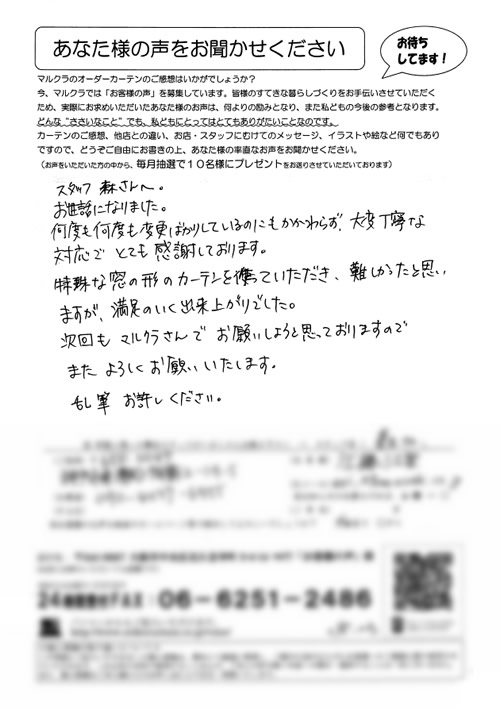 あなた様の声をお聞かせください
お待ち
してます！
マルクラのオーダーカーテンのご感想はいかがでしょうか？
今、マルクラでは「お客様の声」を募集しています。皆様のすてきな暮らしづくりをお手伝いさせていただく
ため、実際にお求めいただいたあなた様のお声は、何よりの励みとなり、また私どもの今後の参考となります。
どんな“ささいなこと”でも、私どもにとってはとてもありがたいことなのです。
カーテンのご感想、他店との違い、お店・スタッフにむけてのメッセージ、イラストや絵など何でもあり
ですので、どうぞご自由にお書きの上、あなた様の率直なお声をお聞かせください。
（お声をいただいた方の中から、毎月抽選で１０名様にプレゼントをお送りさせていただいております）
スタッフ 森さんへ。
お世話になりました。
何度も何度も変更ばかりしているのにもかかわらず、大変丁寧な
対応で とても 感謝しております。
特殊な窓の形のカーテンを作っていただき、難しかったと思い
ますが、満足のいく出来上がりでした。
次回も マルクラさんで お願いしようと思っておりますので
また よろしく お願いいたします。
乱筆 お許しください。
06-6251-2486